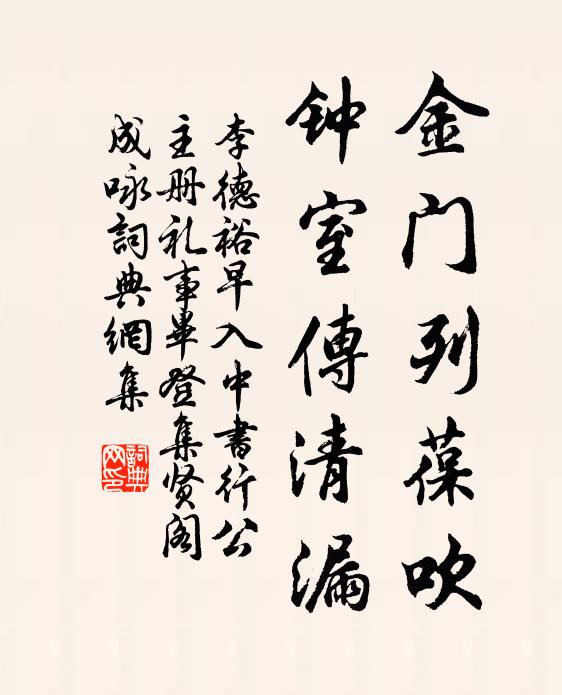 金门列葆吹
钟室傳清漏
李德裕早入中書行公
主册礼事畢登集贤阁
成咏詞典網集
詞典网印